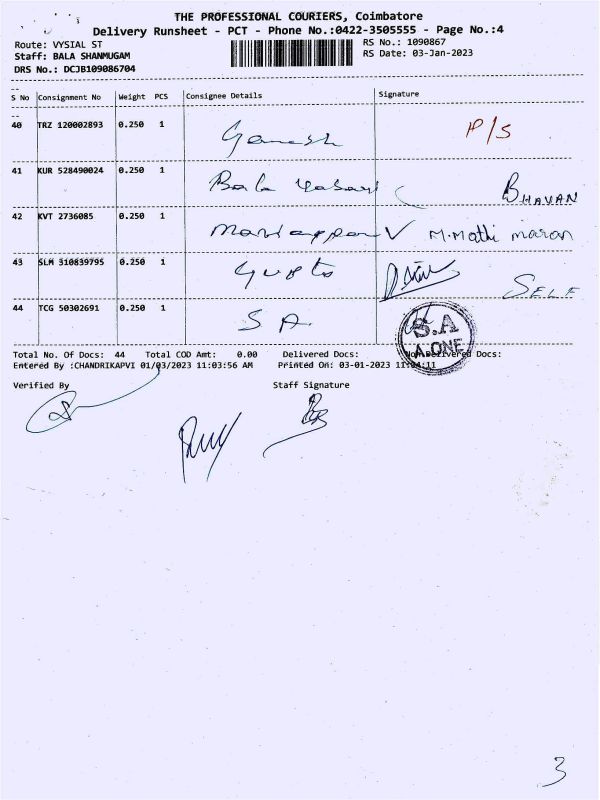 THE PROFESSIONAL COURIERS, Coimbatore
Delivery Runsheet - PCT - Phone No.:0422-3505555 - Page No.:4
Route: VYSIAL ST
RS No.: 1090867
Staff: BALA SHANMUGAM
RS Date: 03-Jan-2023
DRS No.: DCJB109086704
S No Consignment No Weight PCS Consignee Details Signature
40 TRZ 120002893 0.250 1 Ganesh P/S
41 KUR 528490024 0.250 1 Bala BHAVAN
42 KVT 2736085 0.250 1 V M.Mathi maran
43 SLM 310839795 0.250 1 Gupta SELF
44 TCG 50302691 0.250 1 S A S.A A.ONE
Total No. Of Docs: 44 Total COD Amt: 0.00 Delivered Docs: Non Delivered Docs:
Entered By :CHANDRIKAPVI 01/03/2023 11:03:56 AM Printed On: 03-01-2023 11:04:11
Verified By Staff Signature
3